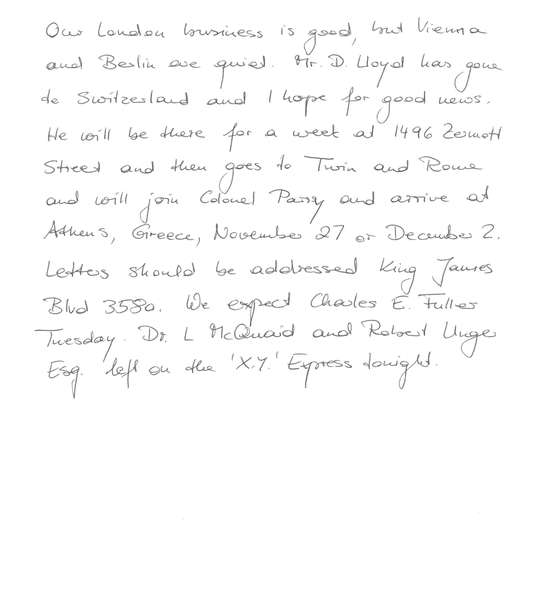 Our London business is good, but Vienna
and Berlin are quiet. Mr. D. Lloyd has gone
to Switzerland and I hope for good news.
He will be there for a week at 1496 Zermott
Street and then goes to Turin and Rome
and will join Colonel Parry and arrive at
Athens, Greece, November 27 or December 2.
Letters should be addressed King James
Blvd 3580. We expect Charles E. Fuller
Tuesday. Dr. L McQuaid and Robert Unger
Esq. left on the 'X.Y.' Express tonight.